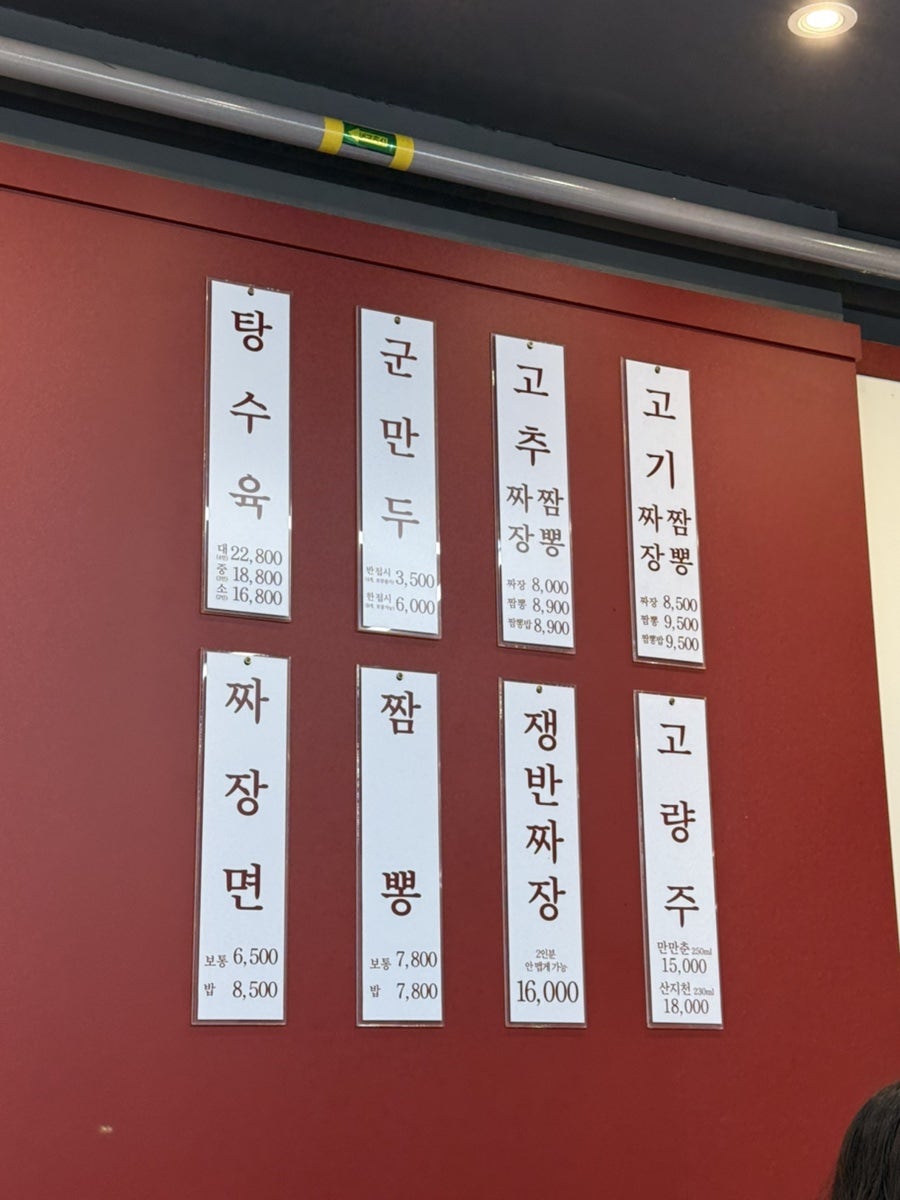 탕수육
대 22,800
중 18,800
소 16,800
군만두
반접시 3,500
한접시 6,000
고추
짜장 짬뽕
짜장 8,000
짬뽕 8,900
짬뽕밥 8,900
고기
짜장 짬뽕
짜장 8,500
짬뽕 9,500
짬뽕밥 9,500
짜장면
보통 6,500
밥 8,500
짬뽕
보통 7,800
밥 7,800
쟁반짜장
2인분
안 맵게 가능
16,000
고량주
만만춘 250ml
15,000
산지천 230ml
18,000